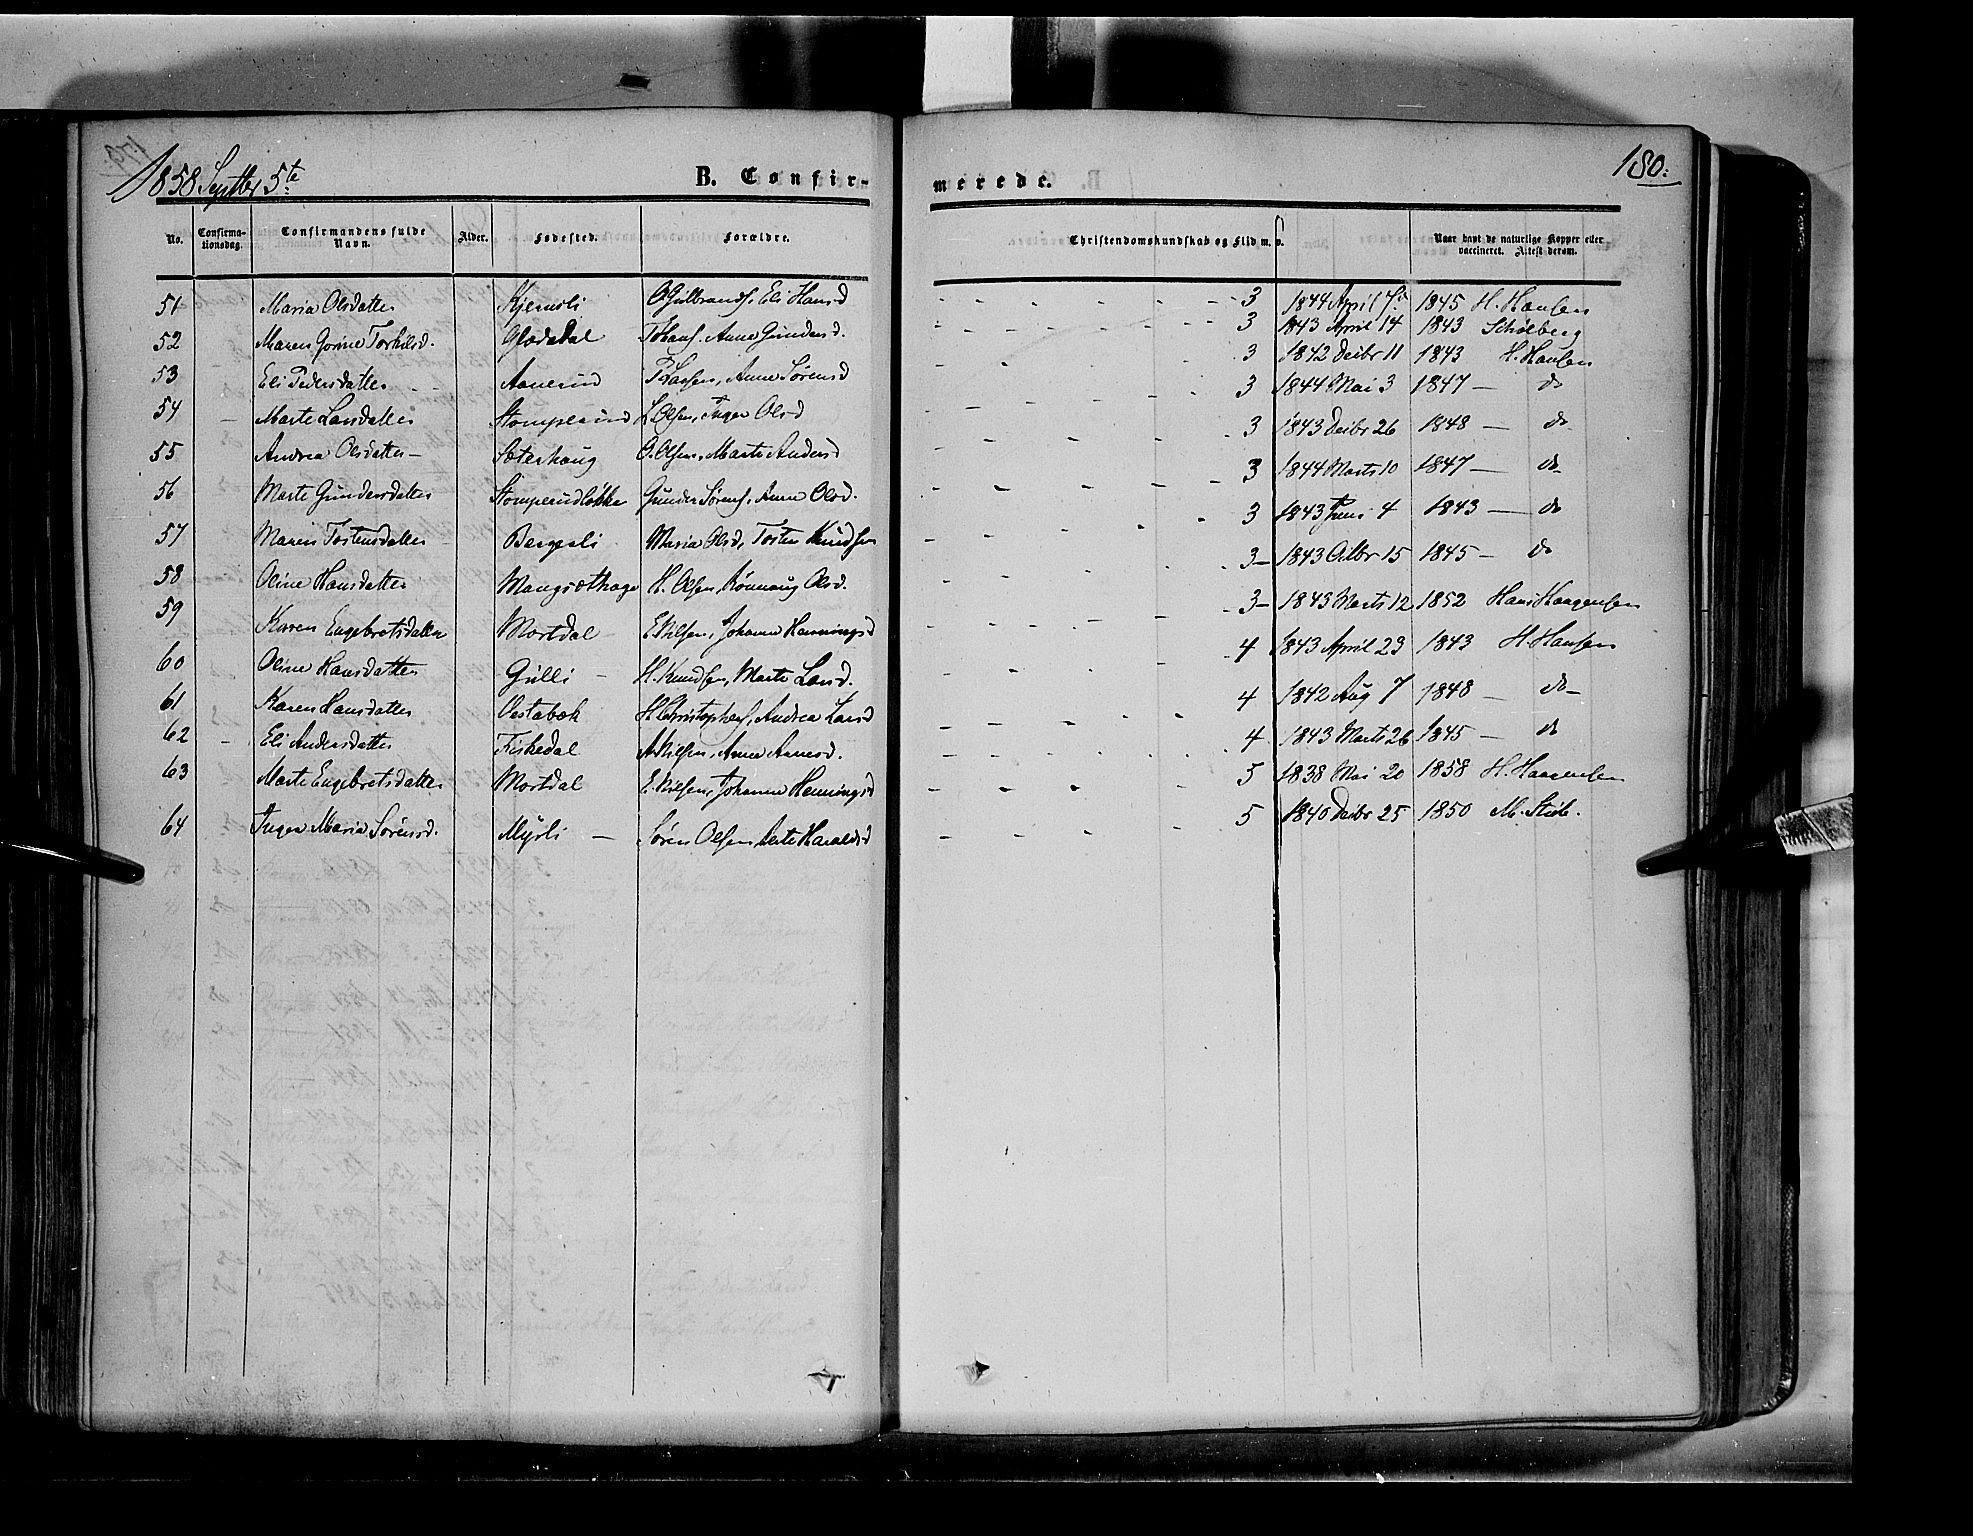 1858 Septbr 5te
B. Confir-
merede.
180.
No. Confirma-tionsdag. Confirmandens fulde Navn. Alder. Fødested. Forældre. Christendomskundskab og Flid m. v. Naar havt de naturlige Kopper eller vaccineret. Attest derom.
51 Maria Olsdatter Kjernsli O Gulbrands. Eli Hansd 3 1844 April 7 1845 H. Hansen
52 Maren Gorine Torkilsd. Glædedal T Hans. Anne Gundersd. 3 1843 April 14 1843 Schølberg
53 Eli Pedersdatter Aanerud P Larsen, Anne Sørensd 3 1842 Decbr 11 1843 H. Hansen
54 - Marte Larsdatter Stomperud L Olsen, Inger Olsd 3 1844 Mai 3 1847 — do
55 Andrea Olsdatter - Sæterhaug O. Olsen, Marte Andersd 3 1843 Decbr 26 1848 — do
56 Marte Gundersdatter Stomperudløkke Gunder Sørens. Anne Olsd. 3 1844 Marts 10 1847 — do
57 Maren Torstensdatter Bergesli Maria Olsd, Torsten Knudsen 3 1843 Juni 4 1843 — do
58 Oline Hansdatter Mangsæthage H. Olsen, Rønnaug Olsd. 3 - 1843 Octbr 15 1845 — do
59 Karen Engebretsdatter Mortdal E Nilsen, Johanne Henningsd 3 - 1843 Marts 12 1852 Hans Haagensen
60 Oline Hansdatter Gulli - H. Knudsen, Marte Larsd. 4 1843 April 23 1843 H. Hansen
61 Karen Hansdatter Oestabæk H Christophers, Andrea Larsd 4 1842 Aug 7 1848 — do -
62 - Eli Andersdatter Fiskedal A Nilsen, Anne Arnesd. 4 1843 Marts 26 1845 — do
63 Marte Engebretsdatter Mortdal E. Nilsen, Johanne Henningsd 5 1838 Mai 20 1858 H. Haagensen
64 Inger Maria Sørensd. Myrli - Søren Olsen, Berte Haraldsd 5 1840 Decbr 25 1850 M.